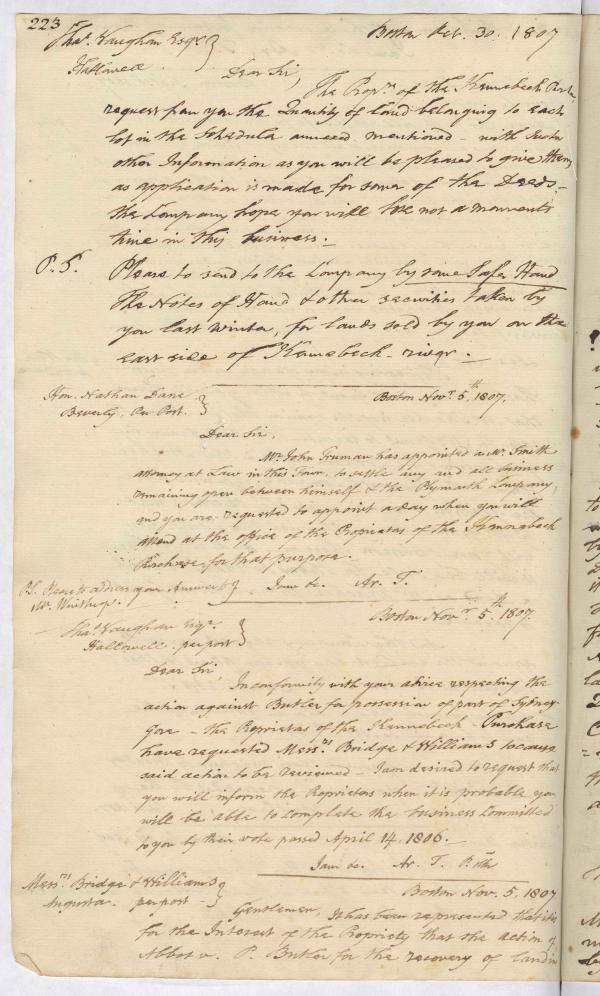 223
Boston Oct. 30. 1807
Thos. Vaughan Esqr.
Hallowell.
Dear Sir,
The Proprs. of the Kennebeck Purch.
request from you the Quantity of land belonging to each
lot in the Schedule annexed mentioned - with such
other Information as you will be pleased to give them,
as application is made for some of the Deeds -
the Company hope you will lose not a moments
time in this business.
P. S. Please to send to the Company by some Safe Hand
The Notes of Hand & other securities taken by
you last winter, for lands sold by you on the
east side of Kennebeck river.
Hon. Nathan Dane
Beverly, per Post.
Boston Novr. 5th. 1807.
Dear Sir,
Mr. John Truman has appointed a Mr. Smith
attorney at Law in this Town, to settle any and all business
remaining open between himself & the Plymouth Company,
and you are requested to appoint a day when you will
attend at the office of the Proprietors of the Kennebeck
Purchase for that purpose.
PS. Please to address your Answer
Mr. Winthrop.
I am &c. Ar. T.
Boston Novr. 5th. 1807.
Thos. Vaughan Esqr.
Hallowell per post
Dear Sir,
In conformity with your advice respecting the
action against Butler for possession of part of Sydney
Gore - the Proprietors of the Kennebeck Purchase
have requested Messrs. Bridge & Williams to cause
said action to be reviewed - I am desired to request that
you will inform the Proprietors when it is probable you
will be able to complete the business committed
to you by their vote passed April 14. 1806.
I am &c. Ar. T.
Messrs. Bridge & Williams
Augusta. per post
Boston Nov. 5. 1807
Gentlemen, It has been represented that it is
for the Interest of the Propriety that the action of
Abbot v. P. Butler for the recovery of land in